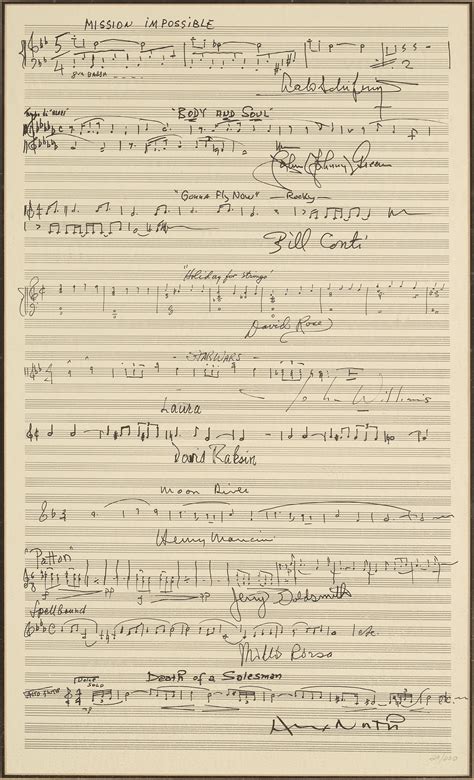 MISSION IMPOSSIBLE
5
4
"BODY AND SOUL"
John (Johnny) Green
"Gonna Fly Now" — Rocky —
Bill Conti
"Holiday for Strings"
David Rose
- STAR WARS -
John Williams
Laura
David Raksin
Moon River
Henry Mancini
"Patton"
pp f pp
Jerry Goldsmith
Spellbound
etc.
Miklos Rozsa
Death of a Salesman
SOLO
ALTO FLUTE
mp
Alex North